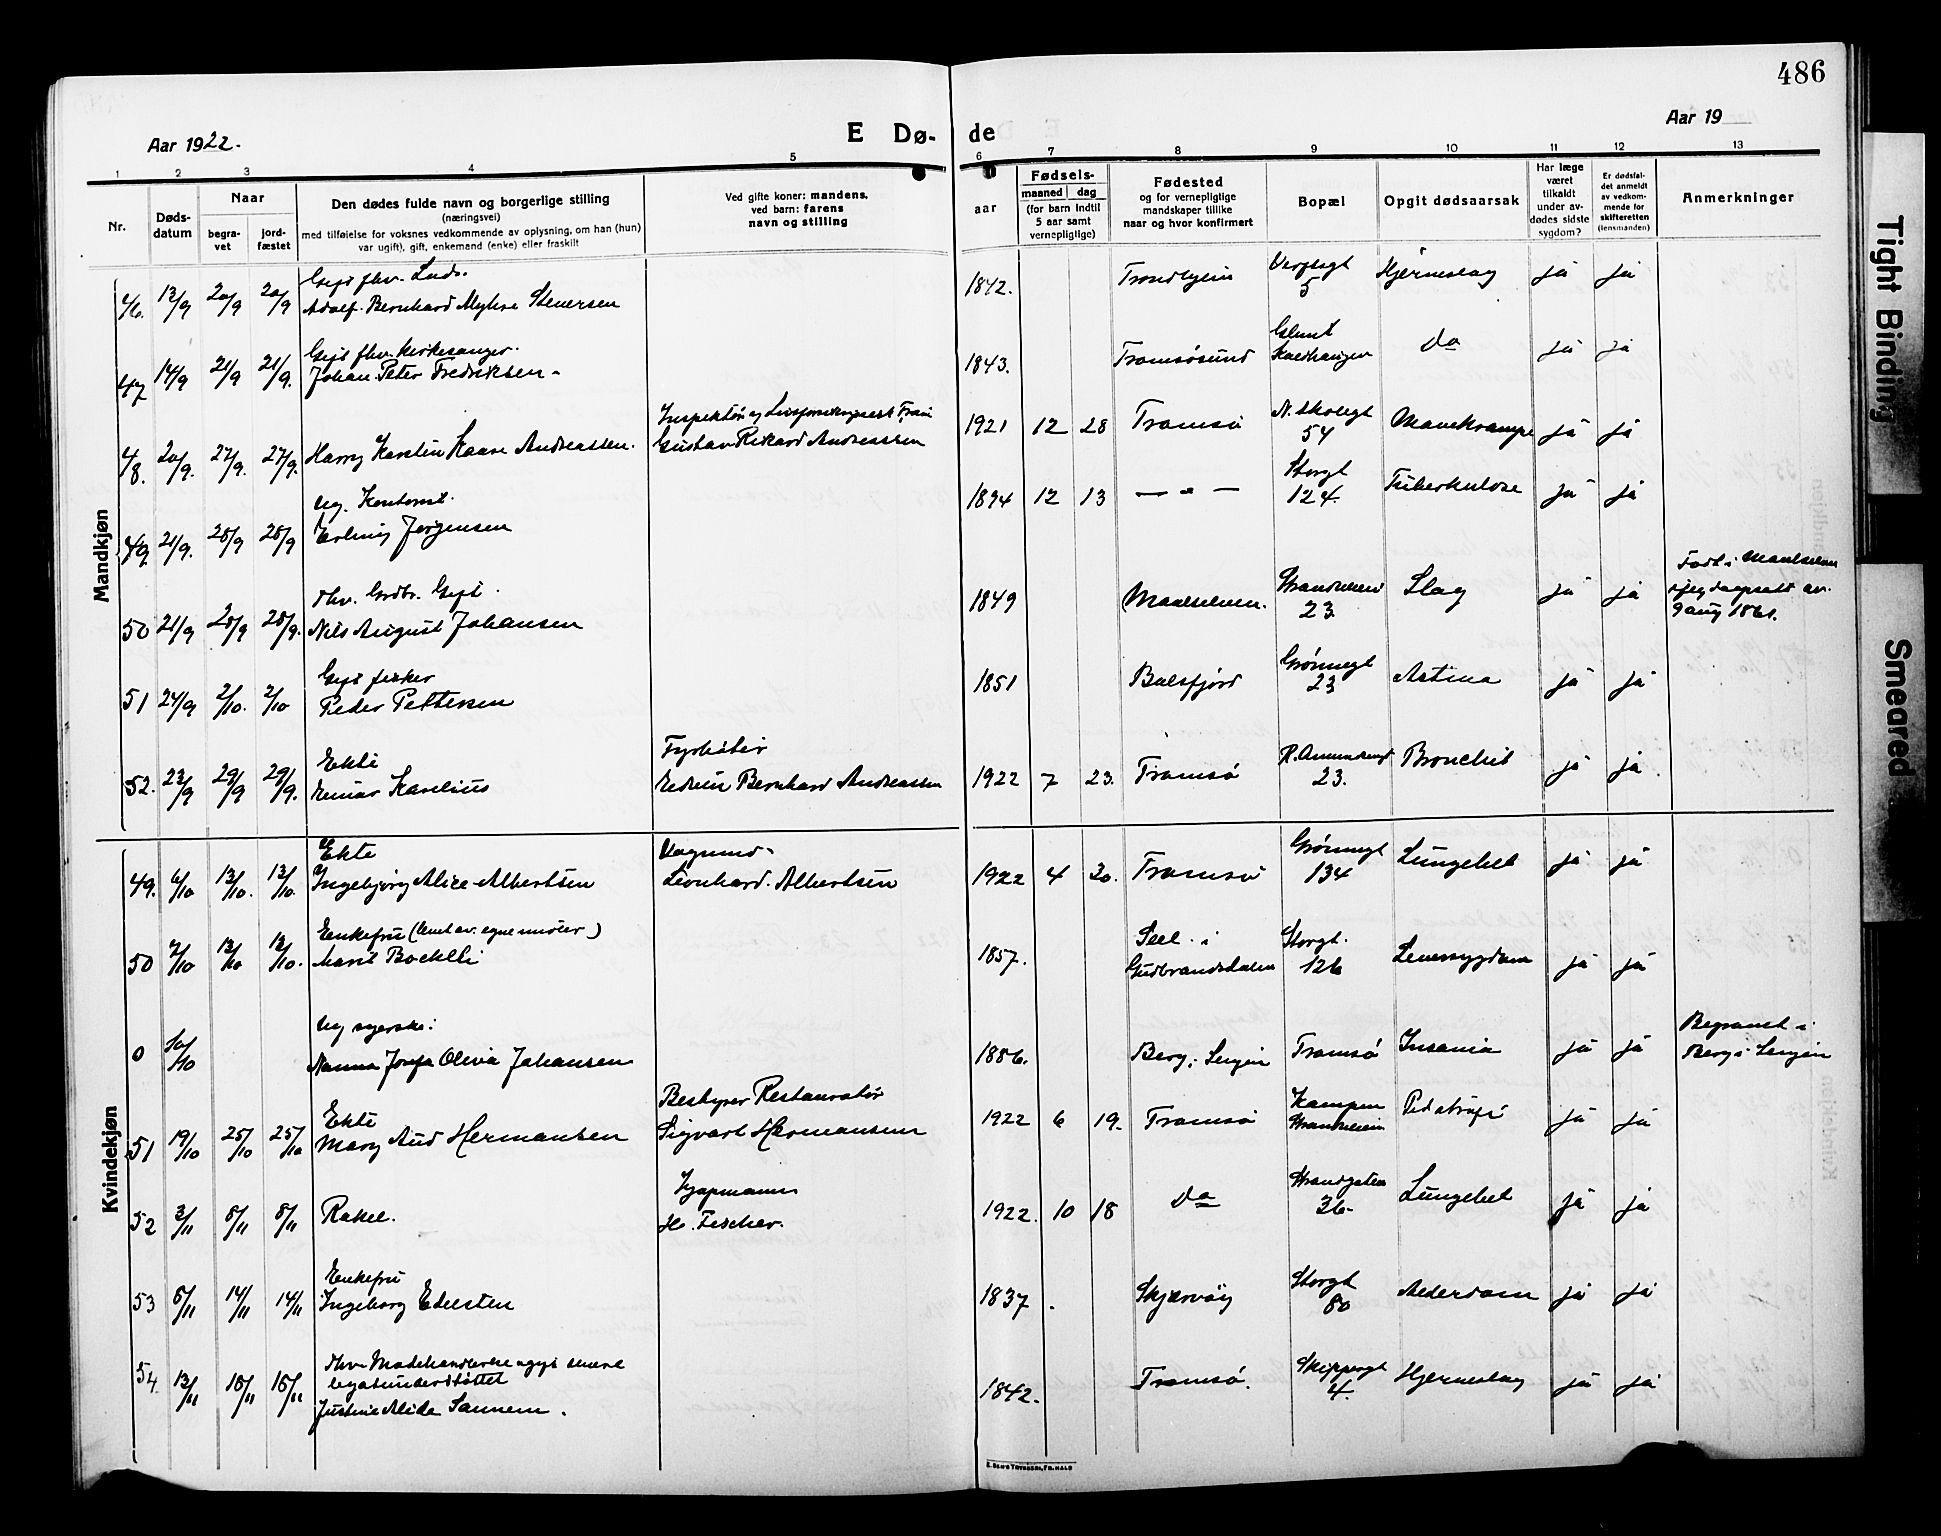 486
Aar 1922.
E Dø-
de
Aar 19
1 2 3 4 5 6 7 8 9 10 11 12 13
Nr.
Døds-
datum
Naar
begra-
vet
jord-
fæstet
Den dødes fulde navn og borgerlige stilling
(næringsvei)
med tilføielse for voksnes vedkommende av oplysning, om han (hun)
var ugift), gift, enkemand (enke) eller fraskilt
Ved gifte koner: mandens,
ved barn: farens
navn og stilling
Fødsels-
aar
maaned dag
(for barn indtil
5 aar samt
vernepligtige)
Fødested
og for vernepligtige
mandskaper tillike
naar og hvor konfirmert
Bopæl
Opgit dødsaarsak
Har læge
været
tilkaldt
under av-
dødes sidste
sygdom?
Er dødsfal-
det anmeldt
av vedkom-
mende for
skifteretten
(lensmanden)
Anmerkninger
Mandkjøn
Gift fhv.
46. 13/9 20/9 20/9 Adolf Bernhard Myhre Stenersen 1842. Trondhjem 5 Hjerneslag ja ja
Gift fhv. kirkesanger.
47 14/9 21/9 21/9. Johan Peter Fredriksen 1843. Tromsøsund do ja ja
48. 20/9. 27/9. 27/9. Harry Karstein Kaare Andreassen. Gustav Rikard Andreassen 1921 12 28 Tromsø N. Skolegt 54 Mavekrampe ja ja
Ug. Kontorist.
49 21/9. 28/9 28/9 Erling Jørgensen 1894 12 13 — " — Storgt 124. Tuberkulose ja ja
fhv. Grdbr. Gift.
50 21/9 28/9 28/9. Nils August Johansen 1849 Maalselven. Strandveien 23. Slag ja ja
Født i Maalselven
9 aug 1861.
Gift fisker
51 24/9 2/10. 2/10 Peder Pettersen 1851 Balsfjord Grønnegt 23 Astma ja ja
Ekte Fyrbøter
52. 23/9 29/9 29/9. Einar Karelius Edvin Bernhard Andreassen 1922 7 23. Tromsø R. Amundsensgt 23. Bronchit ja ja
Kvindekjøn
Ekte Vognmd.
49. 6/10 13/10. 13/10. Ingebjørg Alice Albertsen Leonhard Albertsen 1922 4 30. Tromsø Grønnegt 134 Lungebet ja ja
Enkefru (levet av egne midler)
50 7/10 13/10 13/10. Marit Boeklli 1857. Sell i Gudbrandsdalen Storgt. 126 Leversygdom ja ja
Ug syerske.
0 10/10 Nanna Josefa Olivia Johansen 1886. Berg i Senjen Tromsø Insania ja ja
Begravet i
Berg i Senjen
Ekte Bestyrer Restauratør
51 19/10 25/10 25/10 Mary Aud Hermansen Sigvart Hermansen 1922 6 19. Tromsø Kampen Strandveien Pedatrofi ja ja
Kjøpmann
52 3/11 8/11 8/11 Rakel. H. Fischer. 1922. 10 18 do Strandgaten 36. Lungebet ja ja
Enkefru
53 8/11 14/11 14/11 Ingeborg Ebeltoft 1837. Skjærvøy Storgt 80 Alderdom ja ja
fhv. Modehandlerske ugift senere
legatunderstøttet
54. 13/11 18/11 18/11 Justine Alida Sannem. 1842. Tromsø. Skippergt 4. Hjerneslag ja ja
Tight Binding
Smeared